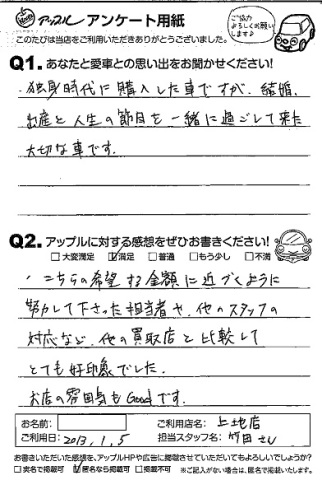 アップル アンケート用紙
ご協力
よろしくお願い
します♪
このたびは当店をご利用いただきありがとうございました。
Q1. あなたと愛車との思い出をお聞かせください!
・独身時代に購入した車ですが、結婚、
出産と人生の節目を一緒に過ごして来た
大切な車です。
Q2. アップルに対する感想をぜひお書きください!
□大変満足 ☑満足 □普通 □もう少し □不満
・こちらの希望する金額に近づくように
努力して下さった担当者や、他のスタッフの
対応など、他の買取店と比較して
とても好印象でした。
お店の雰囲気もGoodです。
お名前: ご利用店名: 上地店
ご利用日: 2013.1.5 担当スタッフ名: 竹田さん
お書きいただいた感想を、アップルHPや広告に掲載させていただいてもよろしいでしょうか?
□実名で掲載可 ☑匿名なら掲載可 □掲載不可 ※ご記入がない場合は、匿名で掲載いたします。